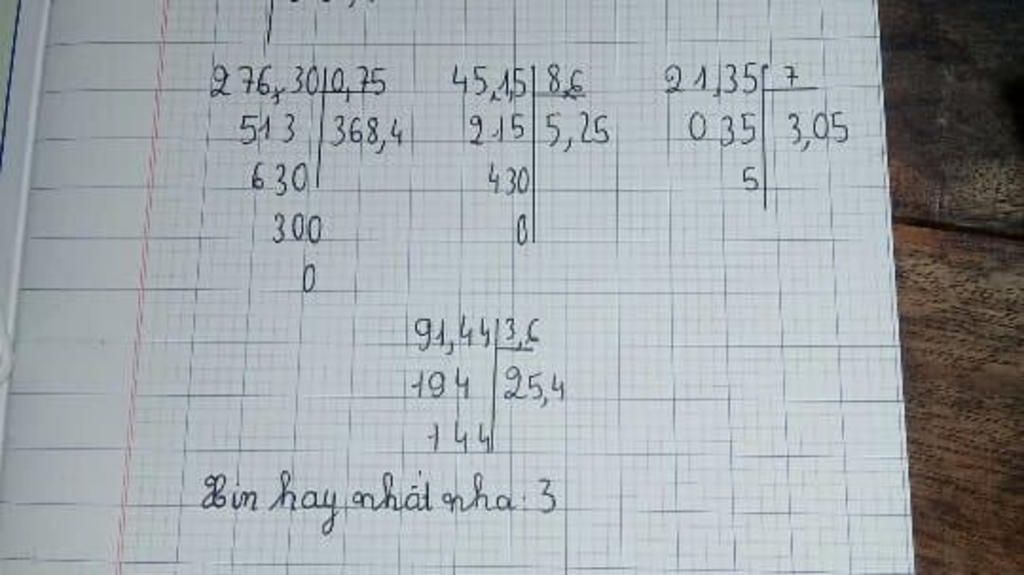 276,30 0,75 45,15 8,6 21,35 7
513 368,4 215 5,25 035 3,05
630 430 5
300 0
0
91,44 3,6
194 25,4
144
Xin hay nhất nha : 3